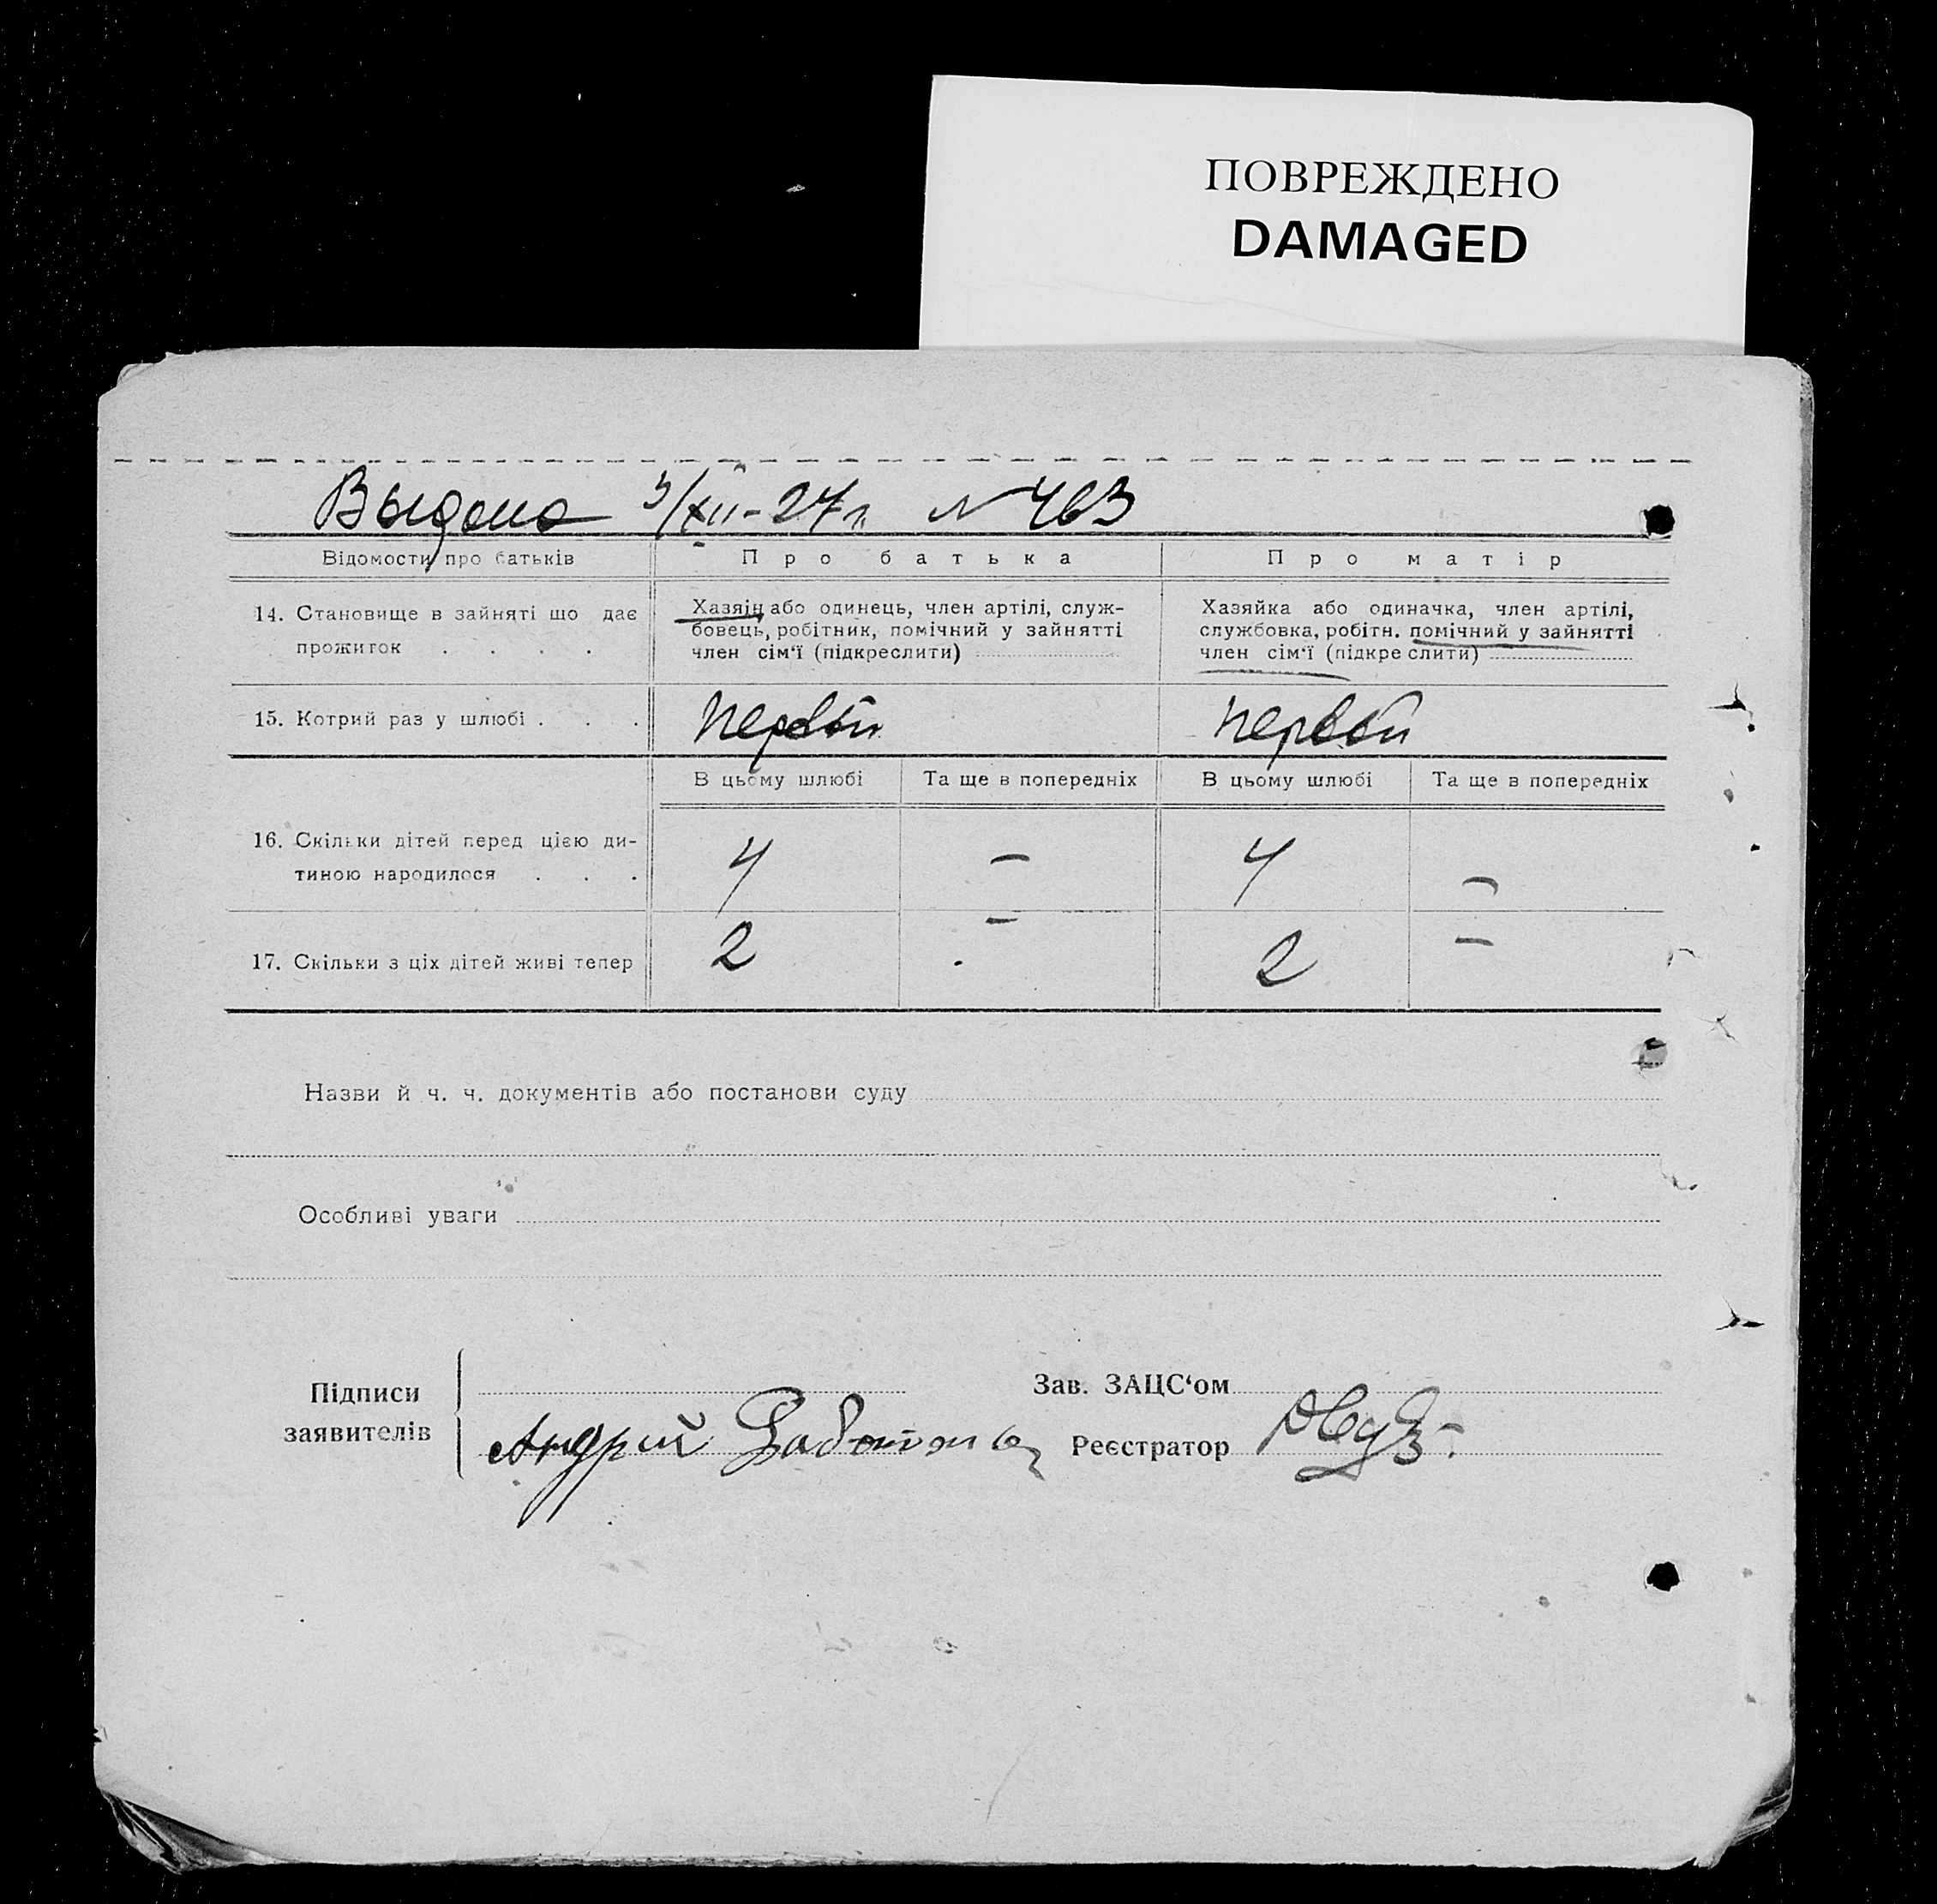 ПОВРЕЖДЕНО
DAMAGED
Выдано 5/XII-27 г. N 463
Відомости про батьків Про батька Про матір
14. Становище в зайняті що дає прожиток . . . .
Хазяїн або одинець, член артілі, служ-
бовець, робітник, помічний у зайнятті
член сім'ї (підкреслити)
Хазяйка або одиначка, член артілі,
службовка, робітн. помічний у зайнятті
член сім'ї (підкреслити)
15. Котрий раз у шлюбі . . . первый первый
В цьому шлюбі Та ще в попередніх В цьому шлюбі Та ще в попередніх
16. Скільки дітей перед цією ди-
тиною народилося . . . 4 — 4 —
17. Скільки з ціх дітей живі тепер 2 — 2 —
Назви й ч. ч. документів або постанови суду
Особливі уваги
Підписи
заявителів
Зав. ЗАЦС‘ом
Андрий
Реєстратор